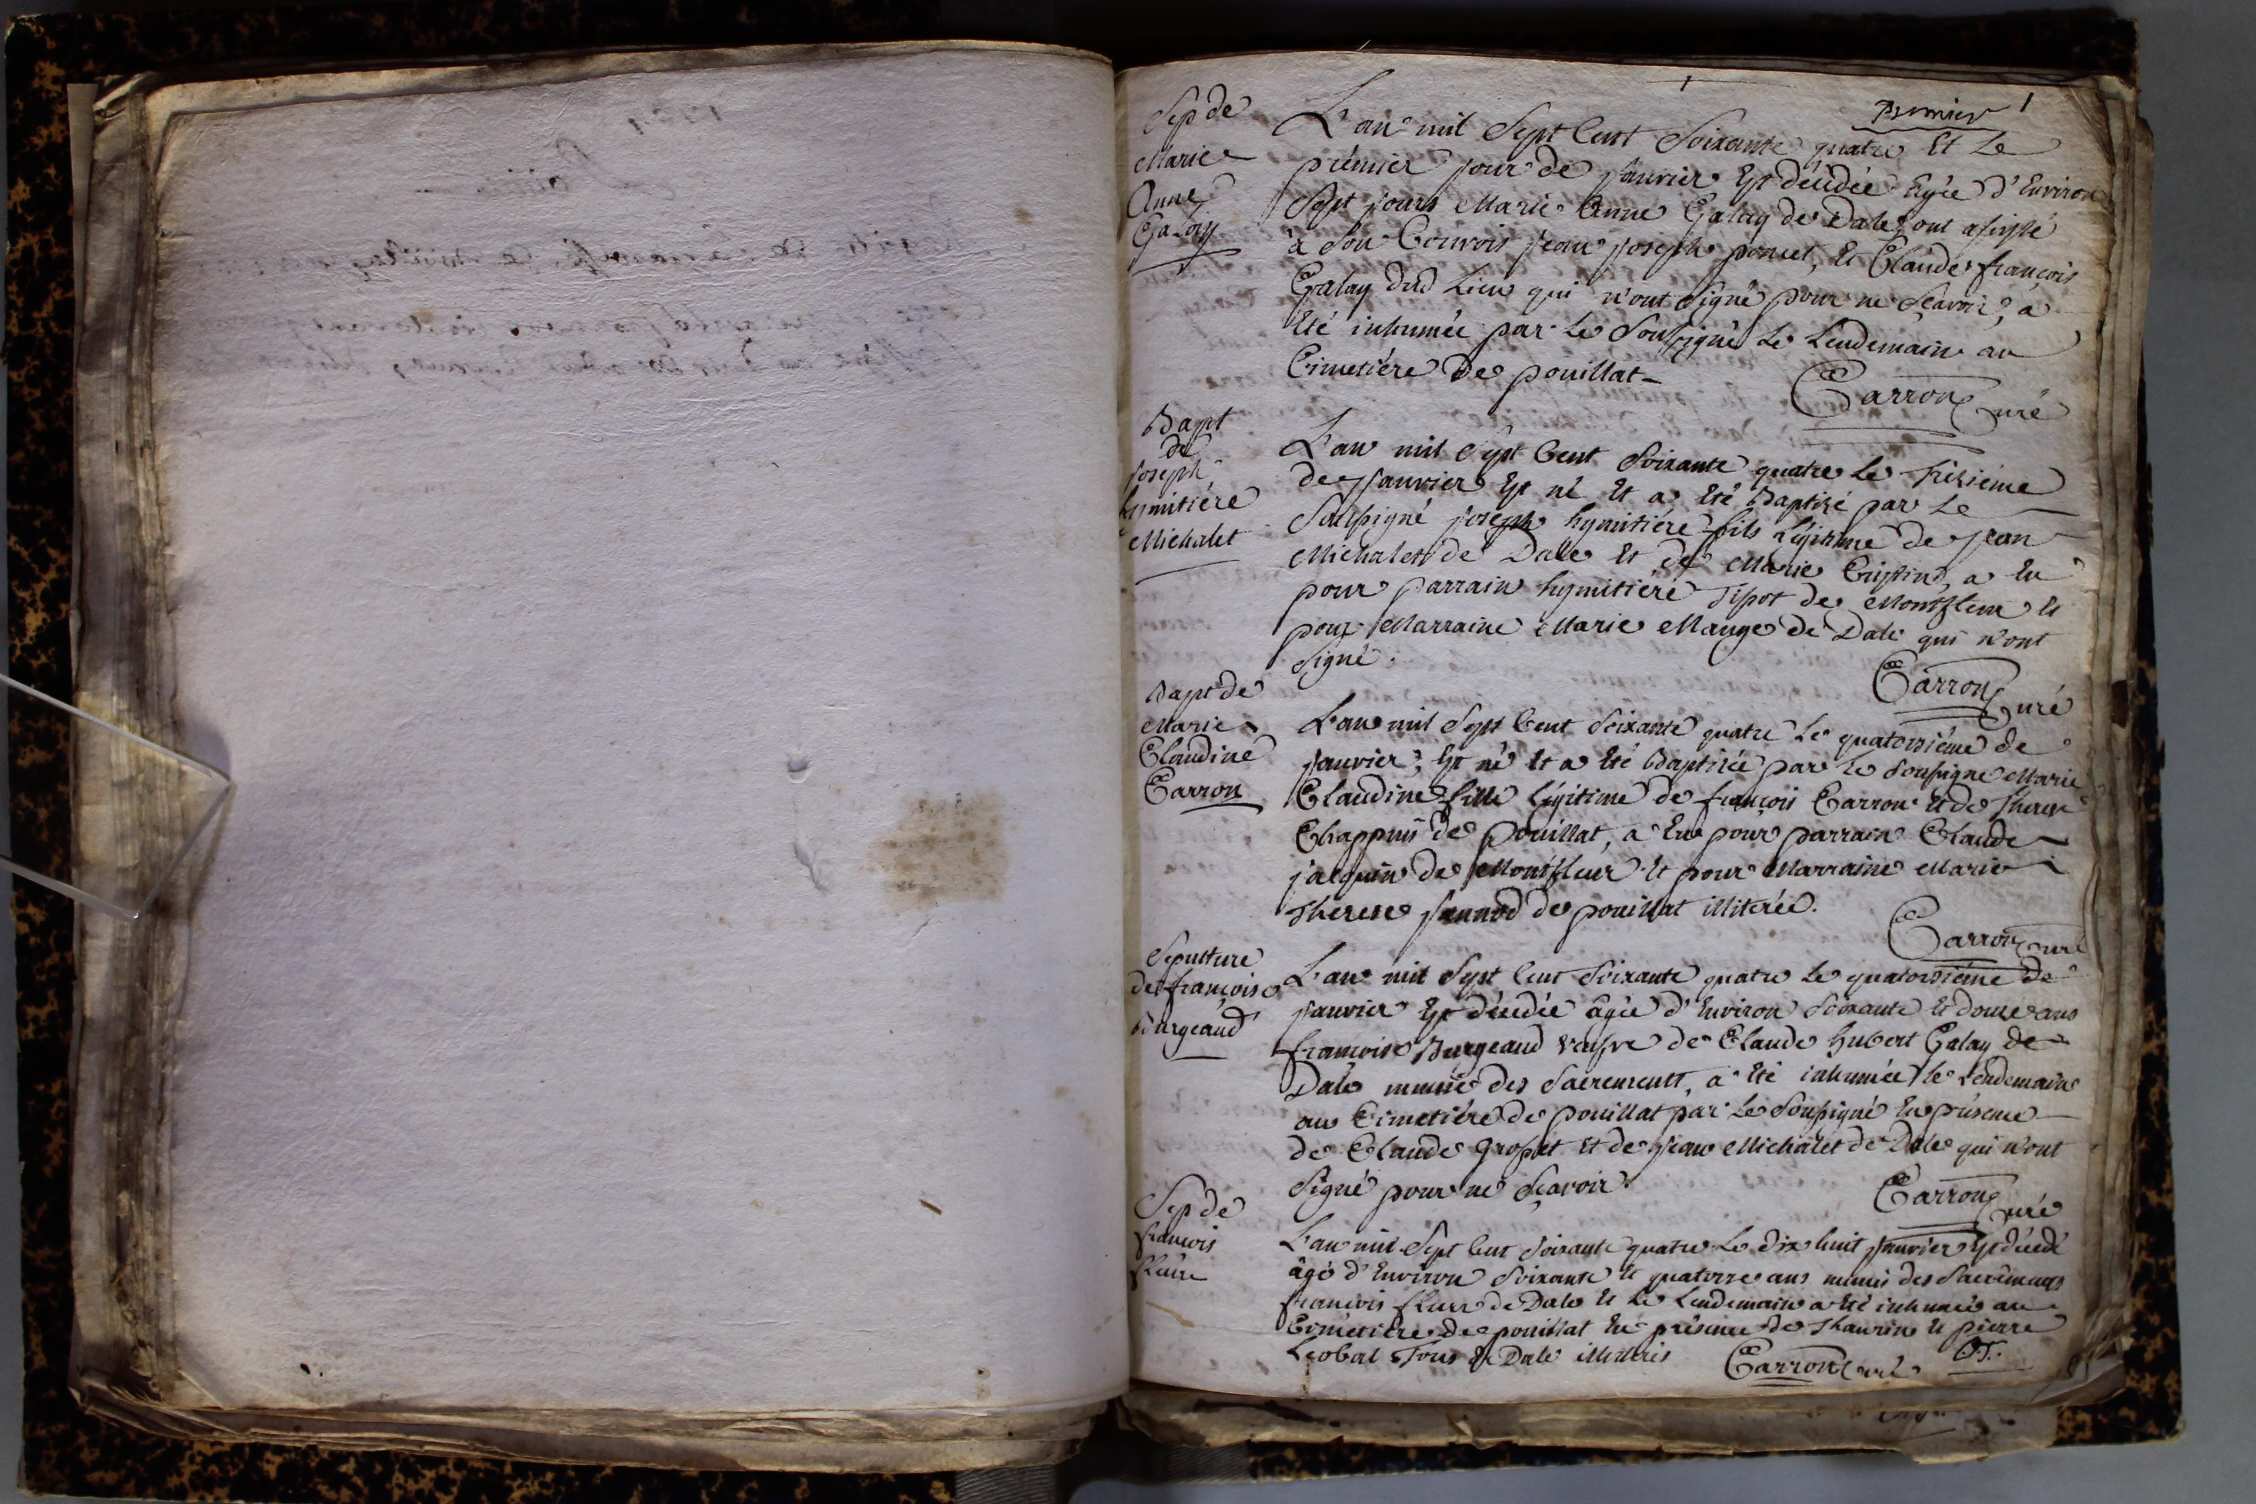 premier 1
Sep de
Marie
Anne
Galay
L'an mil Sept Cent Soixante quatre Et Le
prémier jour de Janvier Est décédée Agée d'Environ
Sept jours Marie Anne Galay de Dale, ont assisté
à Son Convois jean joseph poncet, Et Claude françois
Galay dud Lieu qui n'ont Signé pour ne Sçavoir, a
Eté inhumée par Le Soussigné Le Lendemain au
Cimetiére De pouillat
Carron Curé
Bapt
de
joseph
hymitiére
Michalet
L'an mil Sept Cent Soixante quatre Le Trésiéme
de Janvier Est né Et a Eté Baptizé par Le
Soussigné joseph hymitiére fils Légitime de jean
Michalet de Dale Et de Marie a Eu
pour parrain hymitiére Tipot de Montfleur Et
pour Marraine Marie Mange de Dale qui n'ont
Signé.
Carron Curé
Bapt de
Marie
Claudine
Carron
L'an mil Sept Cent Soixante quatre Le quatorziéme de
Janvier, Est né Et a Eté Baptisée par Le Soussigné Marie
Claudine fille Légitime de françois Carron Et de Therese
Chappuis de pouillat, a Eu pour parrain Claude
jacquin de Montfleur Et pour Marraine Marie
Therese Jannod de pouillat illiterée.
Carron Curé
Sepulture
de françoise
Burgeaud
L'an mil Sept Cent Soixante quatre Le quatorziéme de
Janvier Est décédée âgée d'Environ Soixante Et douze ans
françoise Burgeaud veufve de Claude hubert Galay de
Dale munie des Sacrements, a Eté inhumée le Lendemain
au Cimetiére de pouillat par Le Soussigné En présence
de Claude Et de jean Michalet de Dale qui n'ont
Signé pour ne Sçavoir.
Carron Curé
Sep de
françois
L'an mil Sept Cent Soixante quatre Le dix huit Janvier Est décédé
âgé d'Environ Soixante Et quatorze ans munis des Sacréments
françois de Dale Et Le Lendemain a Eté inhumée au
Cimétiére de pouillat En présence de Thaurin Et pierre
Tous de Dale
Carron Curé